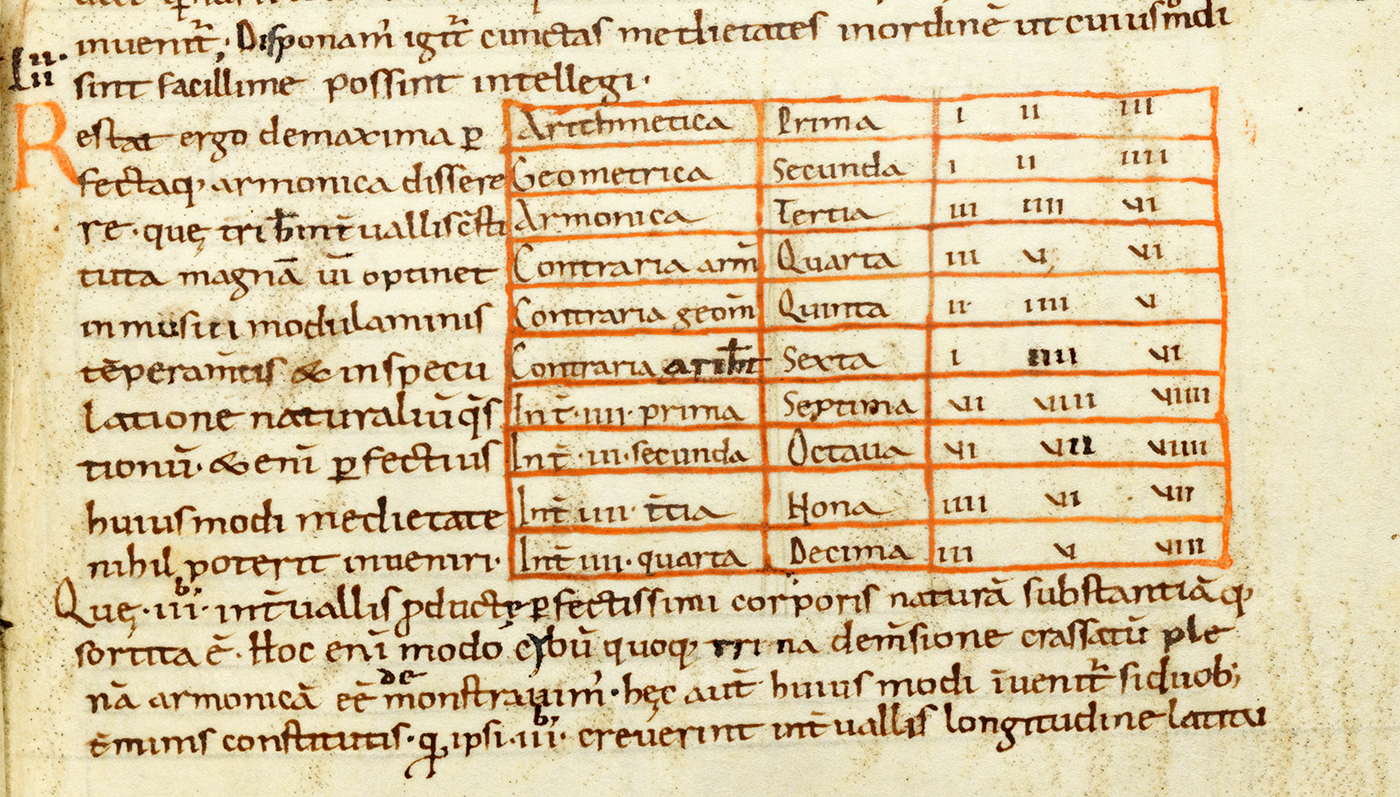 inuenit̄. Disponam̄ igit̄ cunctas medietates inordinē ut cuiusmodi
lii. sint facillime possint intellegi.
Restat ergo demaxima ꝑ
fectaq; armonica dissere
re. quę trib; int̄uallis c̄sti
tuta magnā uī optinet
inmusici modulaminis
tēperam̄tis & inspecu
latione naturaliū q̄s
tionū. & enī ꝑfectius
huiusmodi medietate
nihil poterit inueniri.
Arithmetica Prima i ii iii
Geometrica Secunda i ii iiii
Armonica Tertia iii iiii vi
Contraria arm̄ Quarta iii v vi
Contraria geom̄ Quinta ii iiii v
Contraria arith̄t Sexta i iiii vi
Int̄ iiii prima Septima vi viii viiii
Int̄ iii secunda Octaua vi vii viiii
Int̄ iiii t̄tia Nona iiii vi vii
Int̄ iiii quarta Decima iii v viii
Quę .iii. int̄uallis ꝓducta ꝑfectissimi corporis naturā substantiāq;
sortita ē. Hoc enī modo cybū quoq; trina dem̄sione crassatū ple
nā armonicā eē demonstrauim̄. hęc aut̄ huius modi īuenit̄ si duob;
t̄minis constitutis. q̄ ipsi .iii. creuerint int̄uallis longitudine latitu